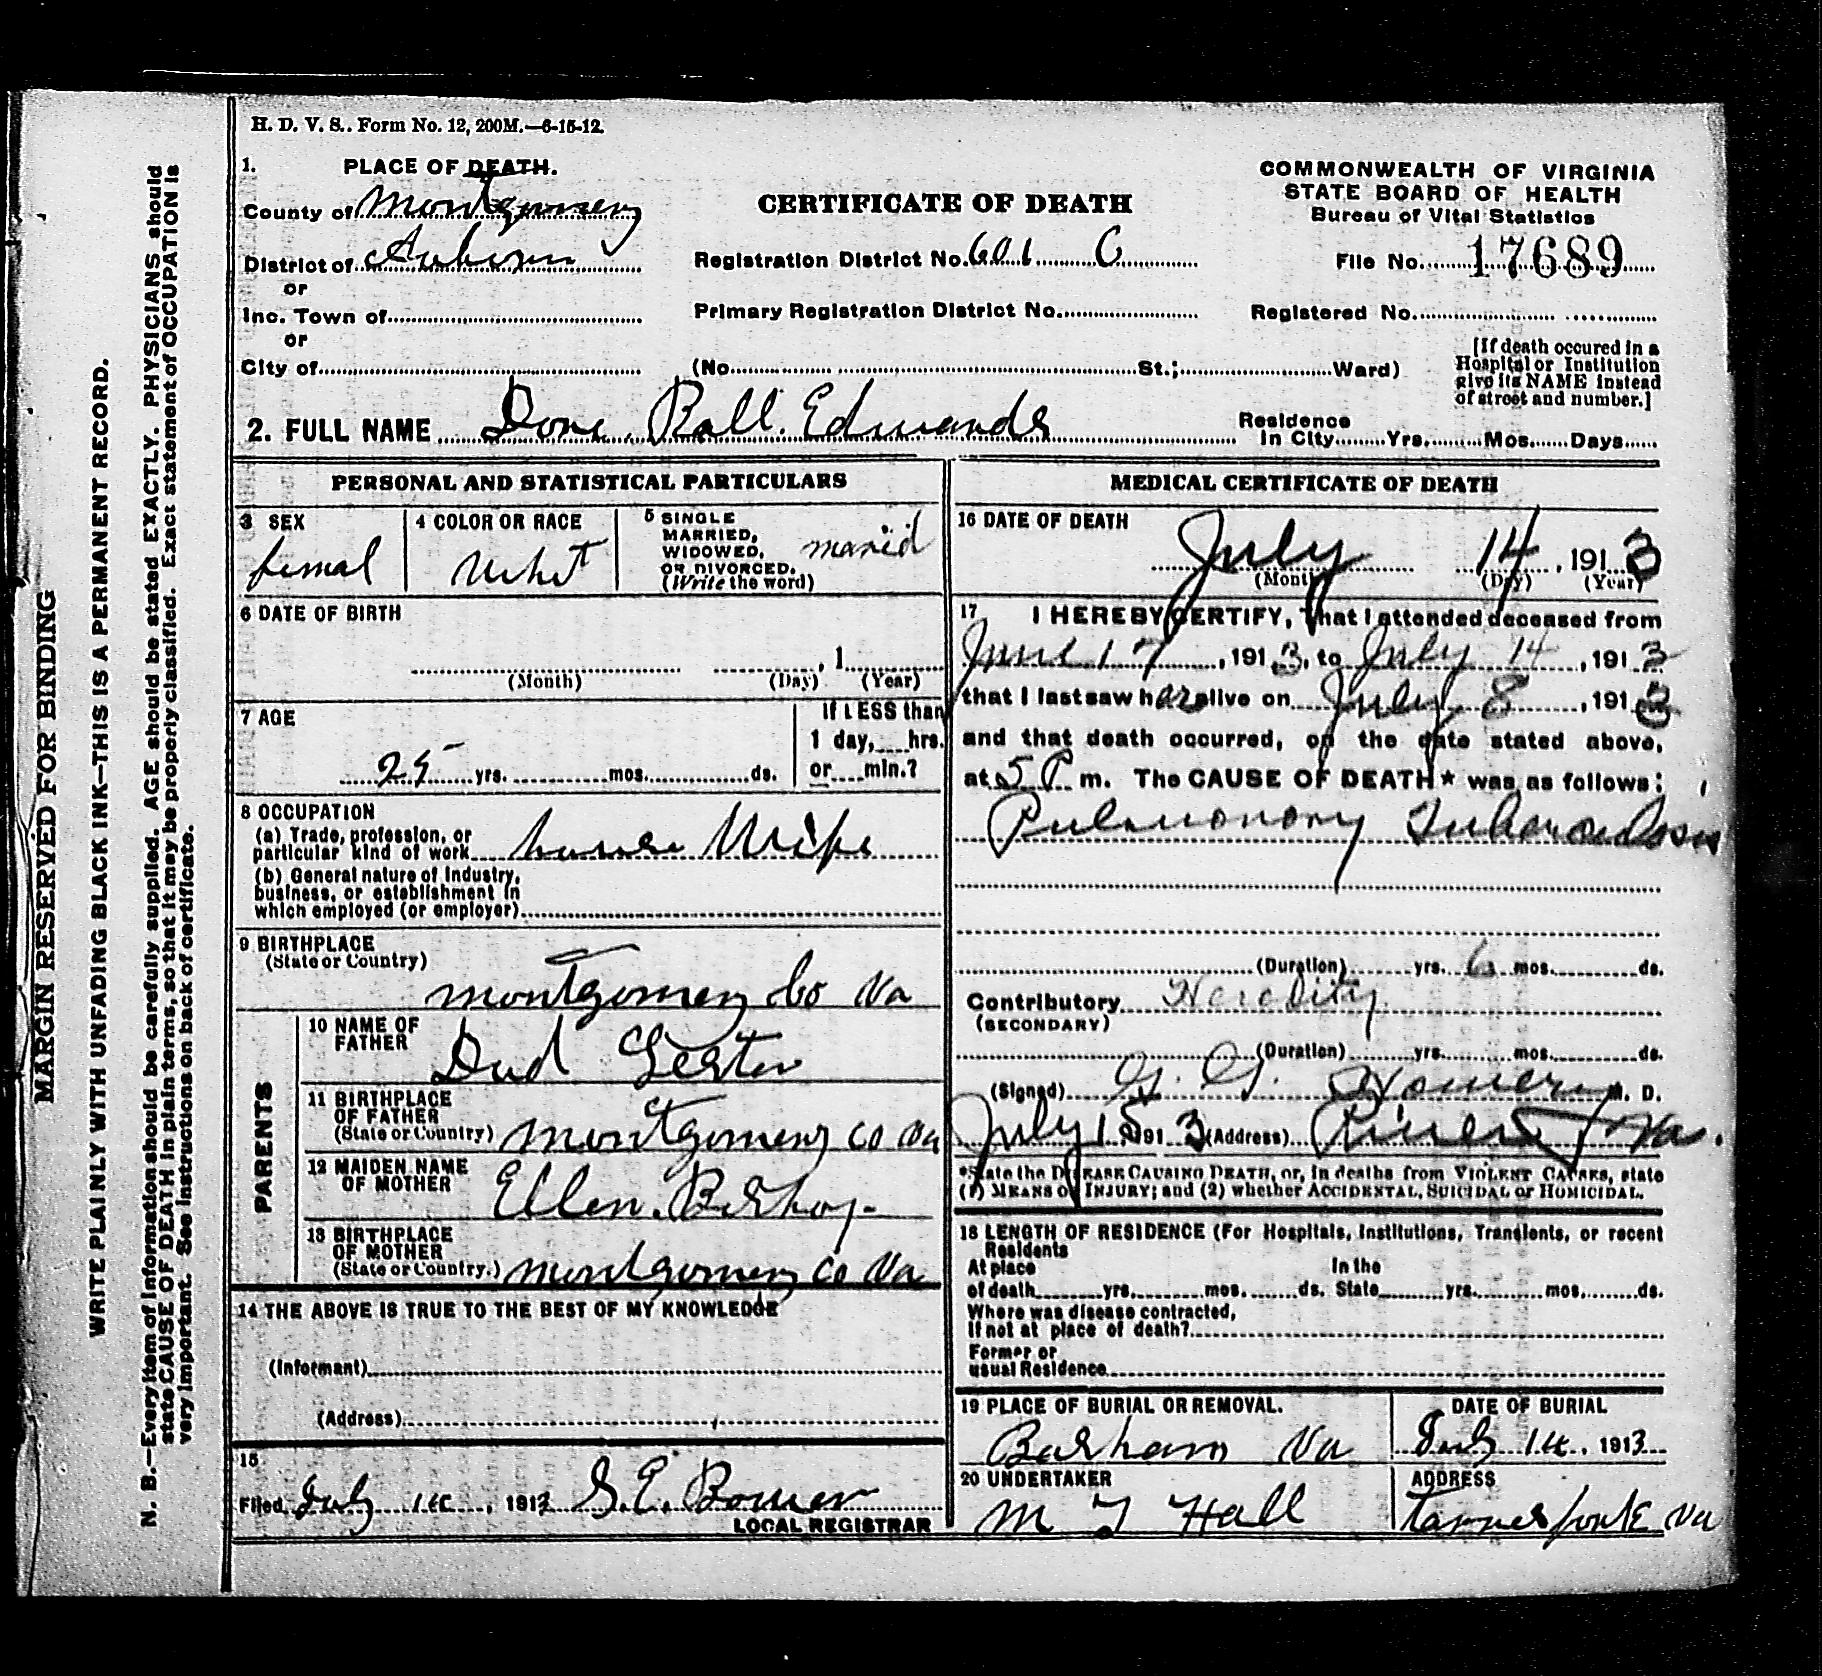 H. D. V. S.. Form No. 12, 200M.—6-15-12.
1. PLACE OF DEATH.
County of Montgomery
District of Auburn
or
Inc. Town of
or
City of
CERTIFICATE OF DEATH
Registration District No. 601 C
Primary Registration District No.
(No. St.; Ward)
COMMONWEALTH OF VIRGINIA
STATE BOARD OF HEALTH
Bureau of Vital Statistics
File No. 17689
Registered No.
[If death occured in a
Hospital or Institution
give its NAME instead
of street and number.]
2. FULL NAME Edwards
Residence
In City Yrs. Mos. Days
PERSONAL AND STATISTICAL PARTICULARS
3 SEX
femal
4 COLOR OR RACE
Whit
5 SINGLE
MARRIED,
WIDOWED,
OR DIVORCED.
(Write the word)
marid
6 DATE OF BIRTH
, 1
(Month) (Day) (Year)
7 AGE
25 yrs. mos. ds.
If LESS than
1 day, hrs.
or min.?
8 OCCUPATION
(a) Trade, profession, or
particular kind of work house Wife
(b) General nature of Industry,
business, or establishment in
which employed (or employer)
9 BIRTHPLACE
(State or Country)
Montgomery Co Va
PARENTS
10 NAME OF
FATHER
Dud Lester
11 BIRTHPLACE
OF FATHER
(State or Country) Montgomery Co Va
12 MAIDEN NAME
OF MOTHER
Ellen Bishop
13 BIRTHPLACE
OF MOTHER
(State or Country.) Montgomery Co Va
14 THE ABOVE IS TRUE TO THE BEST OF MY KNOWLEDGE
(Informant)
(Address)
15
Filed July 14, 1913 S. E. Bower
LOCAL REGISTRAR
MEDICAL CERTIFICATE OF DEATH
16 DATE OF DEATH
July 14, 1913
(Month) (Day) (Year)
17 I HEREBY CERTIFY, That I attended deceased from
June 17, 1913, to July 14, 1913
that I last saw her alive on July 8, 1913
and that death occurred, on the date stated above,
at 5 P m. The CAUSE OF DEATH* was as follows:
Pulmonary Tuberculosis
(Duration) yrs. 6 mos. ds.
Contributory Heredity
(SECONDARY)
(Duration) yrs. mos. ds.
(Signed) M. D.
July 15 1913 (Address) Riner Va.
*State the DISEASE CAUSING DEATH, or, in deaths from VIOLENT CAUSES, state
(1) MEANS OF INJURY; and (2) whether ACCIDENTAL, SUICIDAL or HOMICIDAL.
18 LENGTH OF RESIDENCE (For Hospitals, Institutions, Transients, or recent
Residents
At place In the
of death yrs. mos. ds. State yrs. mos. ds.
Where was disease contracted,
If not at place of death?
Former or
usual Residence
19 PLACE OF BURIAL OR REMOVAL.
Basham Va
DATE OF BURIAL
July 14, 1913
20 UNDERTAKER
M T Hall
ADDRESS
Va
MARGIN RESERVED FOR BINDING
WRITE PLAINLY WITH UNFADING BLACK INK—THIS IS A PERMANENT RECORD.
N. B.—Every item of information should be carefully supplied. AGE should be stated EXACTLY. PHYSICIANS should
state CAUSE OF DEATH in plain terms, so that it may be properly classified. Exact statement of OCCUPATION is
very important. See instructions on back of certificate.